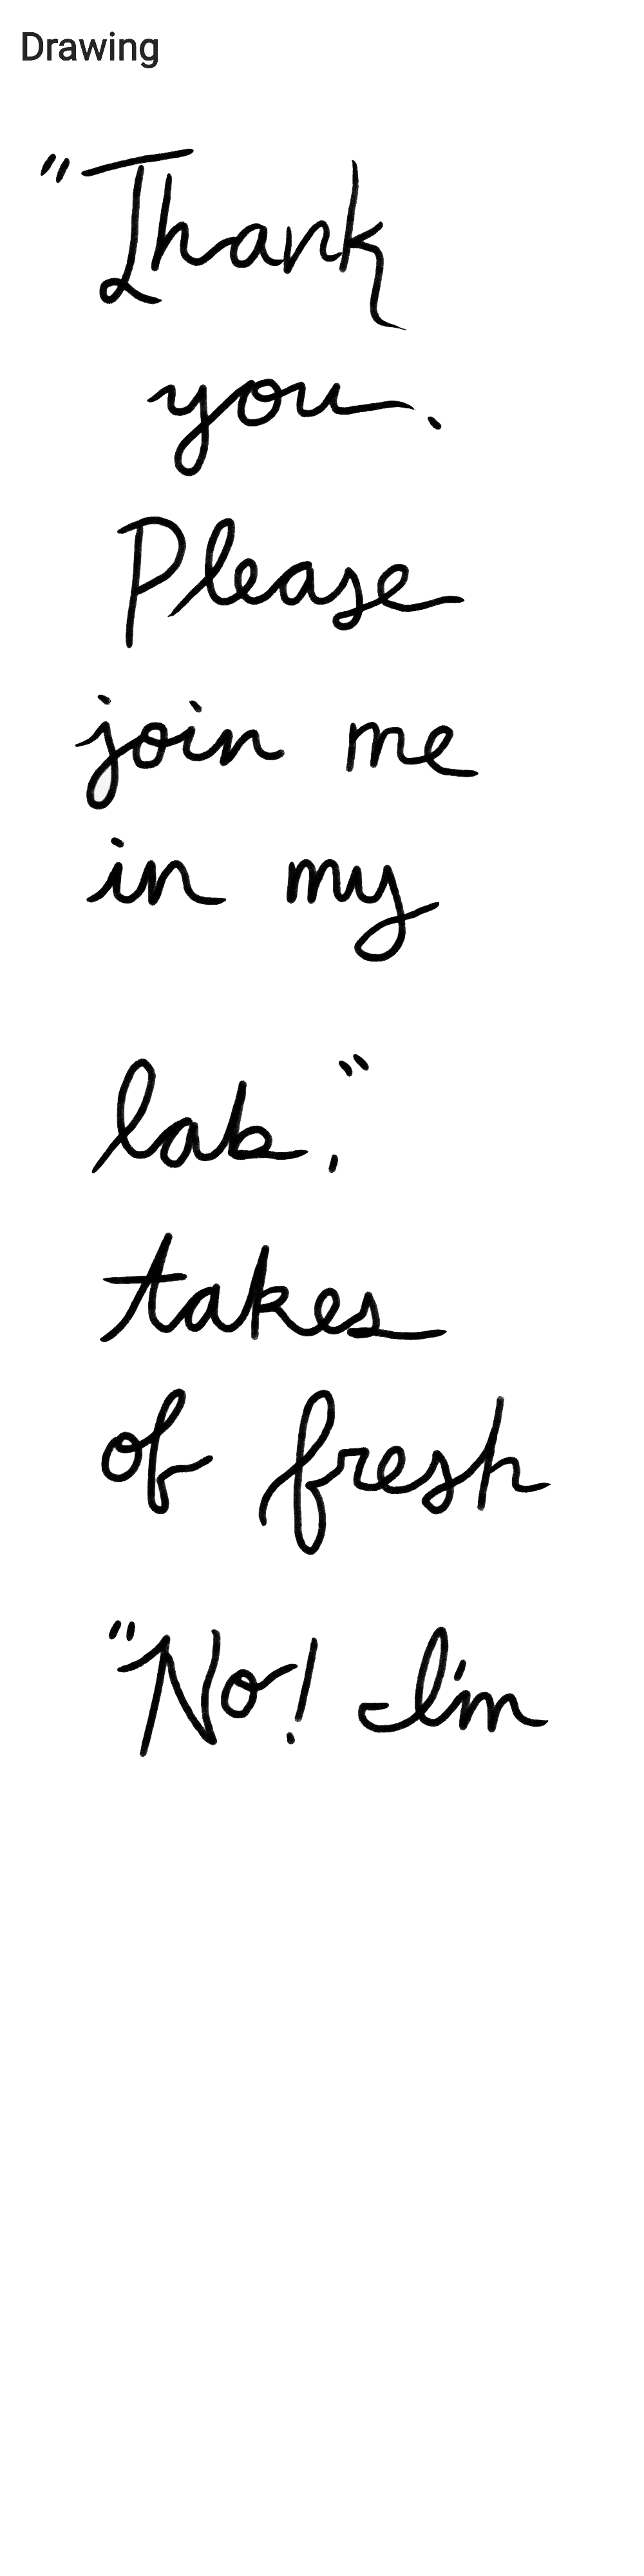 Drawing
"Thank
you.
Please
join me
in my
lab,"
takes
of fresh
"No! I'm